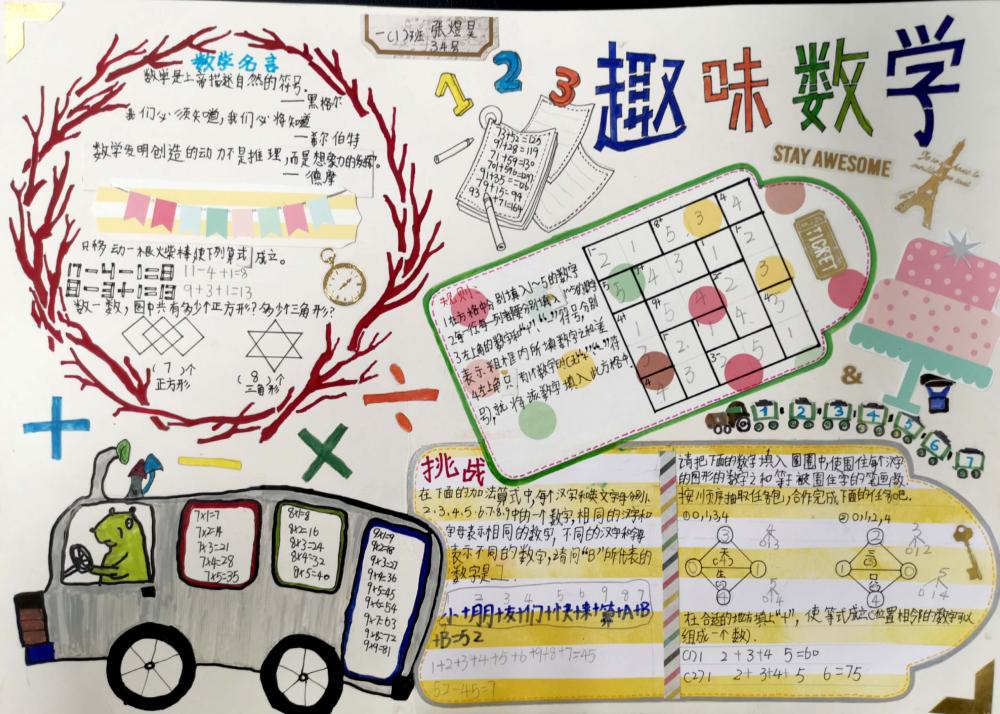 一(1)班 张煜昊
34号
趣味数学
1 2 3
STAY AWESOME
数学名言
数学是上帝描述自然的符号。
——黑格尔
我们必须知道,我们必将知道
——希尔伯特
数学发明创造的动力不是推理,而是想象力的发挥。
——德摩
只移动一根火柴棒使下列算式成立。
17-4-1=8 11-4+1=8
8-3+1=13 9+3+1=13
数一数,图中共有多少个正方形?多少个三角形?
(7)个
正方形
(8)个
三角形
73+52=125
91+28=119
71+59=130
91+35=
79+15=94
93+71=164
规则
1在方格中分别填入1~5的数字
3左上角的数字和"+""-"符号分别
表示粗框内所填数字之和差
号,就将该数字填入此方格中
TICKET
&
1 2 3 4 5 6 7
7x1=7
7x2=14
7x3=21
7x4=28
7x5=35
8x1=8
8x2=16
8x3=24
8x4=32
8x5=40
9x1=9
9x2=18
9x3=27
9x4=36
9x5=45
9x6=54
9x7=63
9x8=72
9x9=81
挑战
在下面的加法算式中,每个汉字和英文字母分别1.
2.3.4.5.6.7.8.9中的一个数字,相同的汉字和
字母表示相同的数字,不同的汉字和字母
表示不同的数字,请问"B"所代表的
数字是7.
2 3 4 5 6 9 8 7
小+朋+友+们+快+来+算+A+B
+B=52
1+2+3+4+5+6+9+8+7=45
52-45=7
请把下面的数字填入圆圈中,使围住每个汉字
的图形的数字之和等于被围住字的笔画数.
按顺序抽取任务包,合作完成下面的任务吧.
①0,1,3,4
②0,1,2,4
在合适的地方填上"+",使等式成立(位置相邻的数字可以
组成一个数).
(1) 2+3+4 5=60
(2) 2+3+4+5 6=75